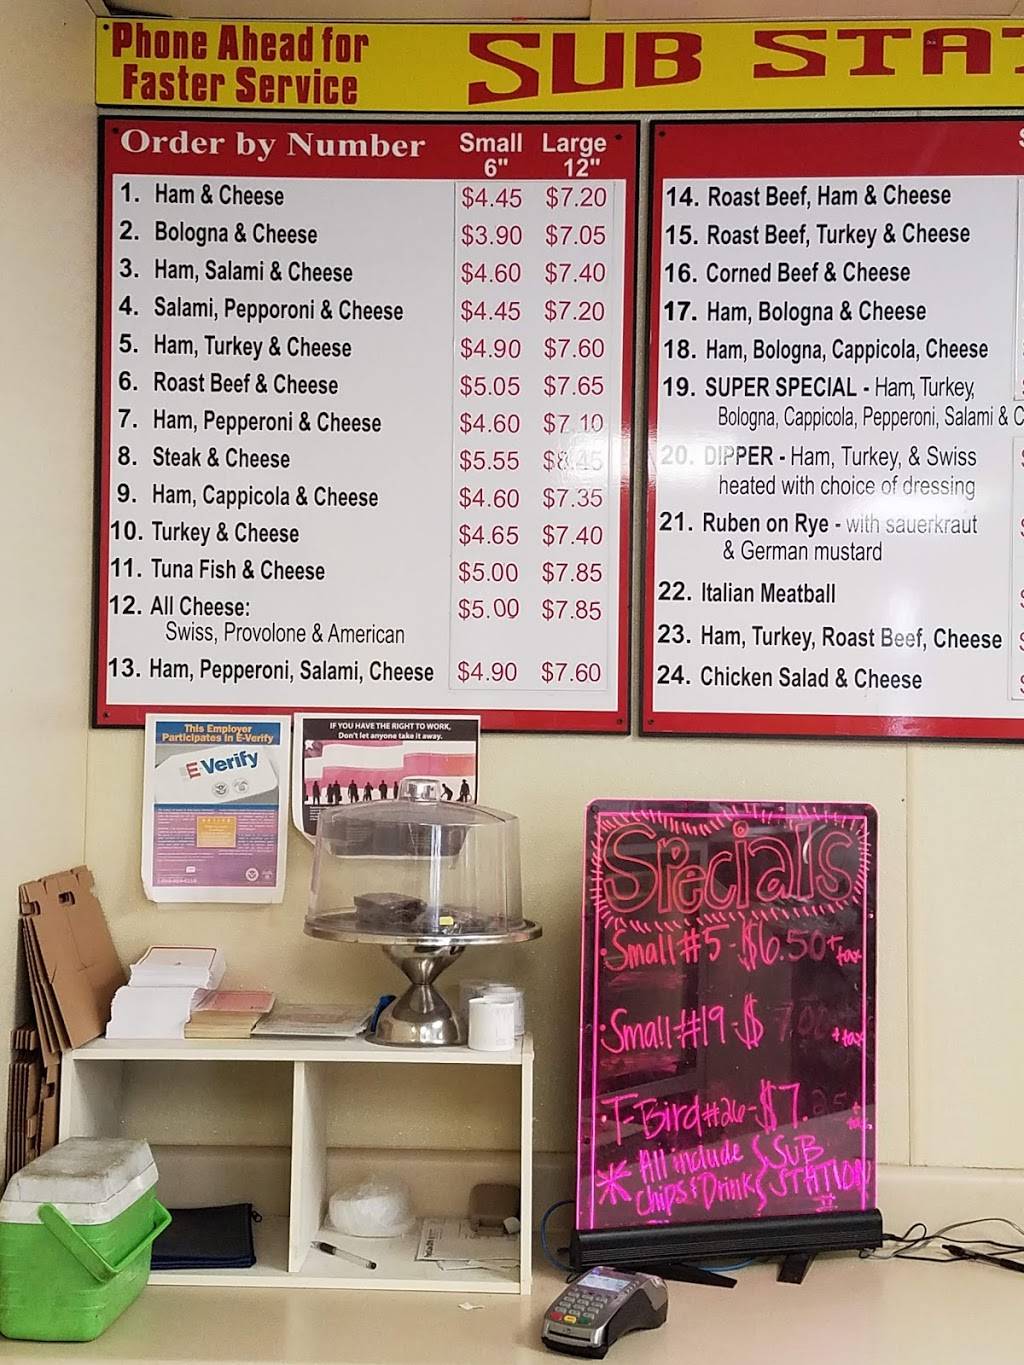 Phone Ahead for
Faster Service
SUB STAT
Order by Number Small Large
6" 12"
1. Ham & Cheese $4.45 $7.20
2. Bologna & Cheese $3.90 $7.05
3. Ham, Salami & Cheese $4.60 $7.40
4. Salami, Pepporoni & Cheese $4.45 $7.20
5. Ham, Turkey & Cheese $4.90 $7.60
6. Roast Beef & Cheese $5.05 $7.65
7. Ham, Pepperoni & Cheese $4.60 $7.10
8. Steak & Cheese $5.55 $8.45
9. Ham, Cappicola & Cheese $4.60 $7.35
10. Turkey & Cheese $4.65 $7.40
11. Tuna Fish & Cheese $5.00 $7.85
12. All Cheese: $5.00 $7.85
Swiss, Provolone & American
13. Ham, Pepperoni, Salami, Cheese $4.90 $7.60
14. Roast Beef, Ham & Cheese
15. Roast Beef, Turkey & Cheese
16. Corned Beef & Cheese
17. Ham, Bologna & Cheese
18. Ham, Bologna, Cappicola, Cheese
19. SUPER SPECIAL - Ham, Turkey,
Bologna, Cappicola, Pepperoni, Salami & C
20. DIPPER - Ham, Turkey, & Swiss
heated with choice of dressing
21. Ruben on Rye - with sauerkraut
& German mustard
22. Italian Meatball
23. Ham, Turkey, Roast Beef, Cheese
24. Chicken Salad & Cheese
This Employer
Participates in E-Verify
E Verify
IF YOU HAVE THE RIGHT TO WORK,
Don't let anyone take it away.
Specials
• Small #5 - $6.50 + tax
• Small #19 - $7.00 + tax
• T-Bird #26 - $7.25 + tax
* All include
chips & Drink
SUB
STATION
II